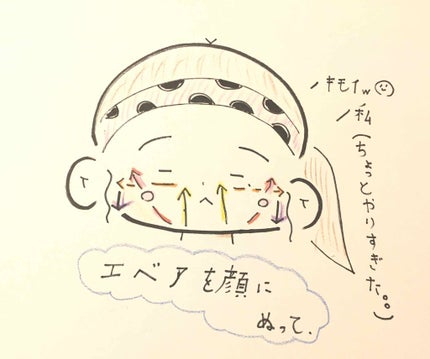 キモイw
私(ちょっとやりすぎた。。)
エベアを顔に
ぬって、